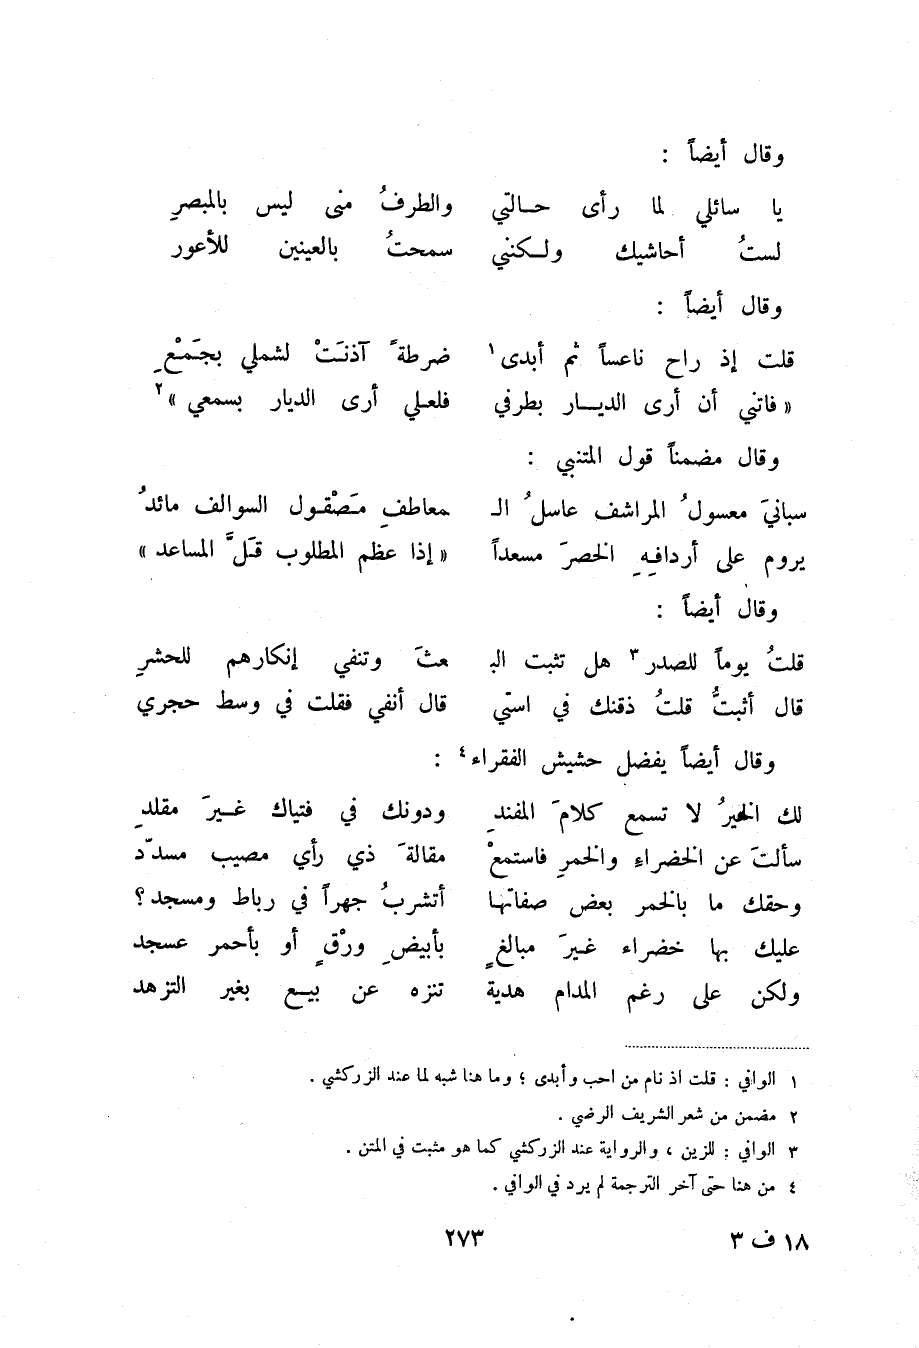 وقال أيضاً :
يا سائلي لما رأى حالتي والطرفُ منى ليس بالمبصرِ
لستُ أحاشيك ولكنني سمحتُ بالعينين للأعور
وقال أيضاً :
قلت إذ راح ناعساً ثم أبدى١ ضرطةً آذنَتْ لشملي بجَمْعِ
« فاتني أن أرى الديار بطرفي فلعلي أرى الديار بسمعي »٢
وقال مضمناً قول المتنبي :
سبانيَ معسولُ المراشف عاسلُ الـ معاطفِ مَصْقول السوالف مائدُ
يروم على أردافِهِ الخصرَ مسعداً « إذا عظم المطلوب قَلَّ المساعد »
وقال أيضاً :
قلتُ يوماً للصدر٣ هل تثبت البـ عثَ وتنفي إنكارهم للحشرِ
قال أثبتُّ قلتُ ذقنك في استي قال أنفي فقلت في وسط حجري
وقال أيضاً يفضل حشيش الفقراء٤ :
لك الخيرُ لا تسمع كلامَ المفندِ ودونك في فتياك غيرَ مقلدِ
سألتَ عن الخضراءِ والخمرِ فاستمعْ مقالةَ ذي رأي مصيب مسدّد
وحقك ما بالخمر بعض صفاتها أتشربُ جهراً في رباط ومسجد؟
عليك بها خضراء غيرَ مبالغٍ بأبيضِ ورْقٍ أو بأحمر عسجد
ولكن على رغم المدام هدية تنزه عن بيع بغير التزهد
١ الوافي : قلت اذ نام من احب وأبدى ؛ وما هنا شبه لما عند الزركشي .
٢ مضمن من شعر الشريف الرضي .
٣ الوافي : للزين ، والرواية عند الزركشي كما هو مثبت في المتن .
٤ من هنا حتى آخر الترجمة لم يرد في الوافي .
١٨ ف ٣ ٢٧٣